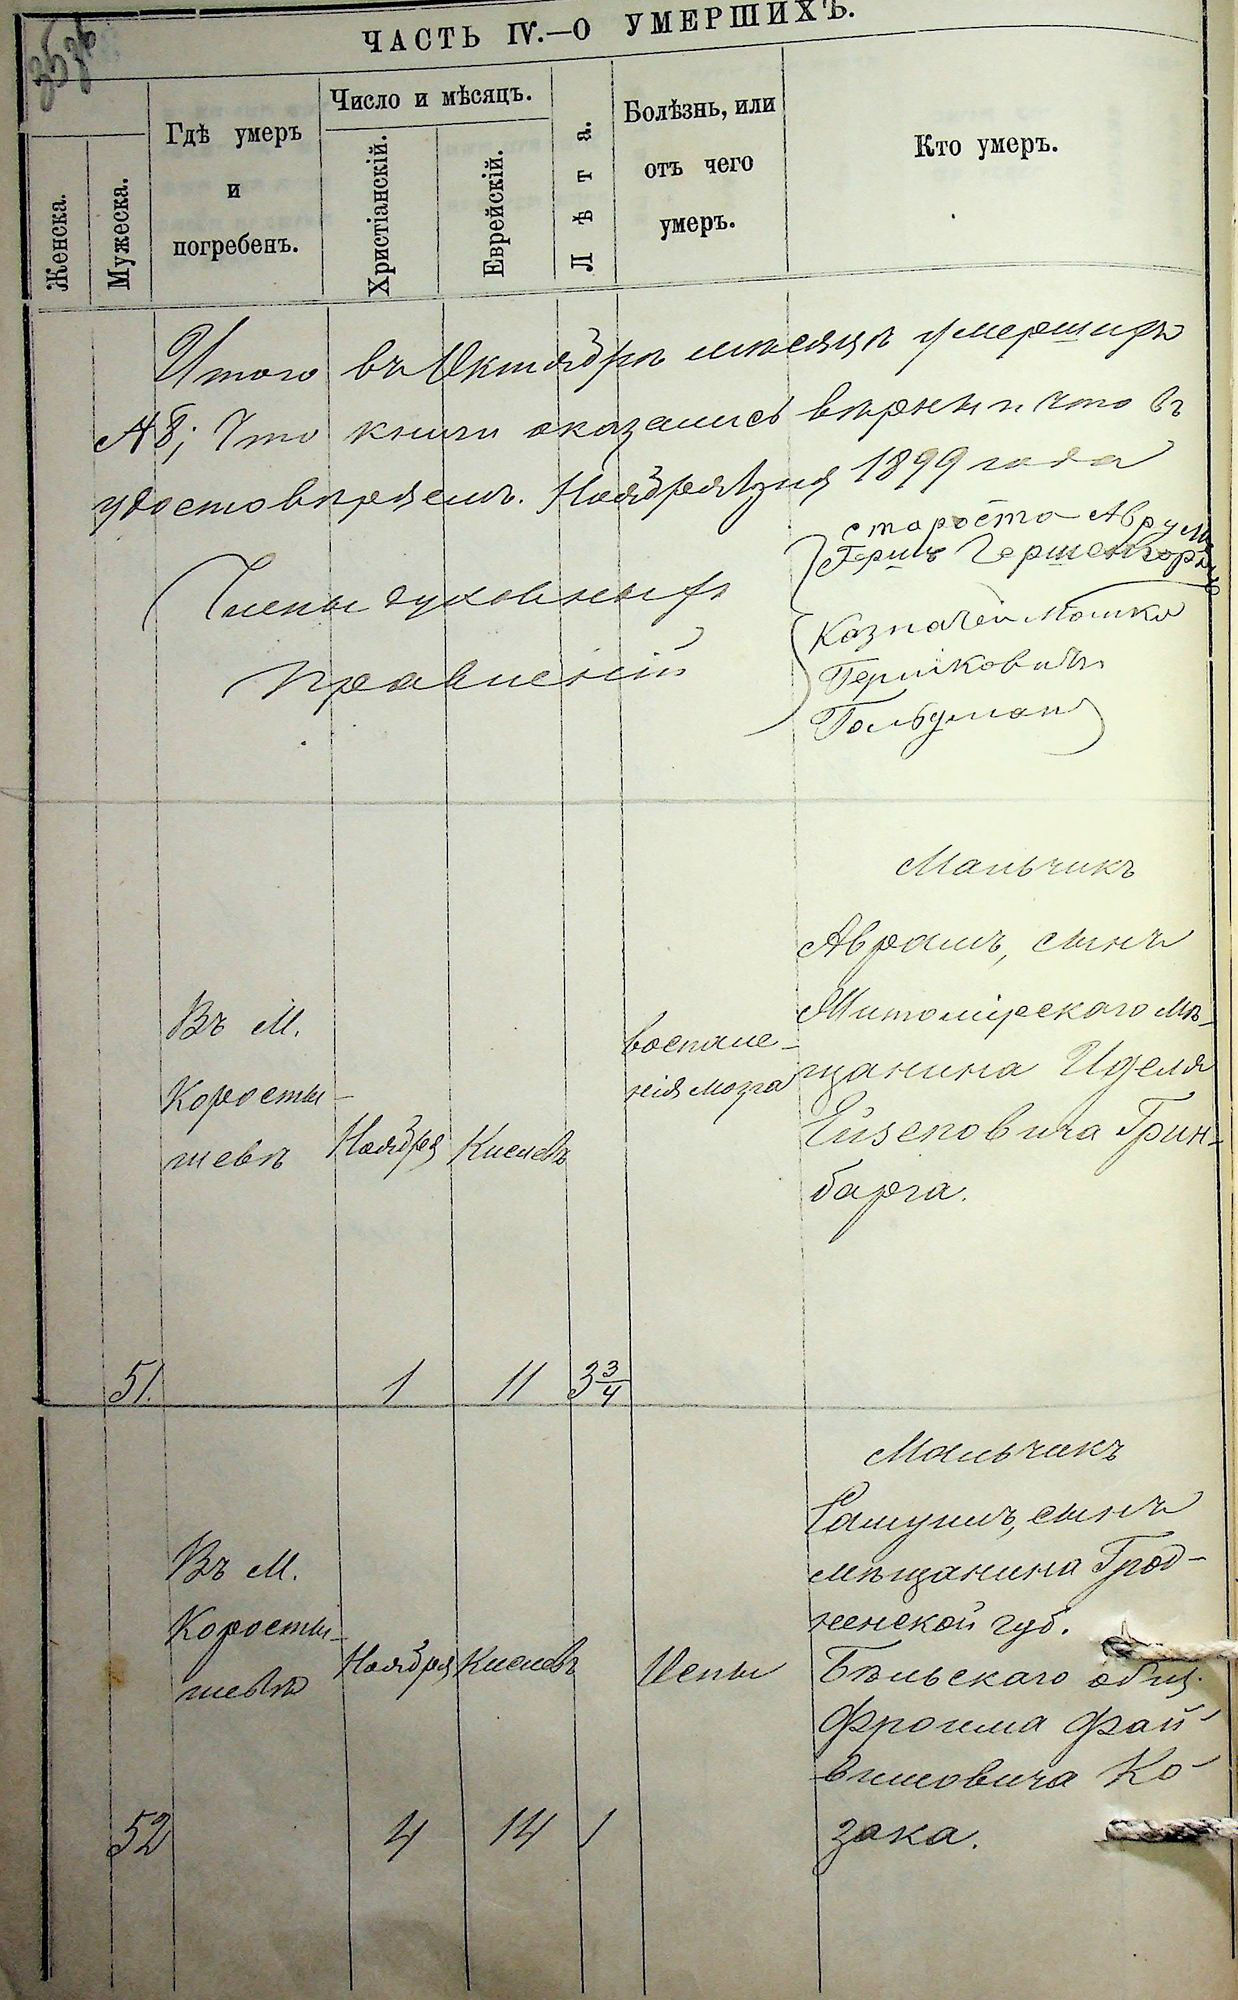 ЧАСТЬ IV.—О УМЕРШИХЪ.
Женска.
Мужеска.
Гдѣ умеръ
и
погребенъ.
Число и мѣсяцъ.
Христіанскій.
Еврейскій.
Лѣта.
Болѣзнь, или
отъ чего
умеръ.
Кто умеръ.
Итого въ Октябрѣ мѣсяцѣ умершихъ
что книги оказались вѣрны и что въ
удостовѣряемъ. Ноября 1899 года
Члены духовныхъ
правленій
староста Аврумъ
Гершъ Гершенгорнъ
Казначей Мошко
Гершковичъ
Гольдман
51.
Въ М.
Коросты-
шевѣ
Ноября
1
Кислевъ
11
3 3/4
воспале-
нія мозга
Мальчикъ
Аврамъ, сынъ
Житомірскаго мѣ-
щанина Иделя
Грин-
барга.
52
Въ М.
Коросты-
шевѣ
Ноября
4
Кислевъ
14
1
Оспы
Мальчикъ
Самуилъ, сынъ
мѣщанина Грод-
ненской губ.
Бѣльскаго общ.
Фроима Фай-
вишовича Ко-
зака.